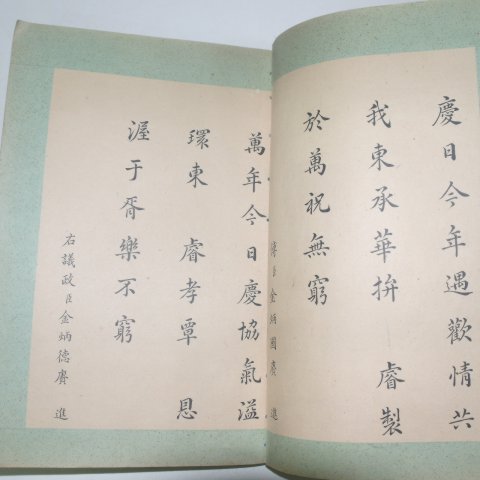 慶日今年遇歡情共
我東承華拚 睿製
於萬祝無窮
臣金炳國賡 進
萬年今日慶協氣溢
環東 睿孝覃 恩
渥于胥樂不窮
右議政臣金炳德賡 進